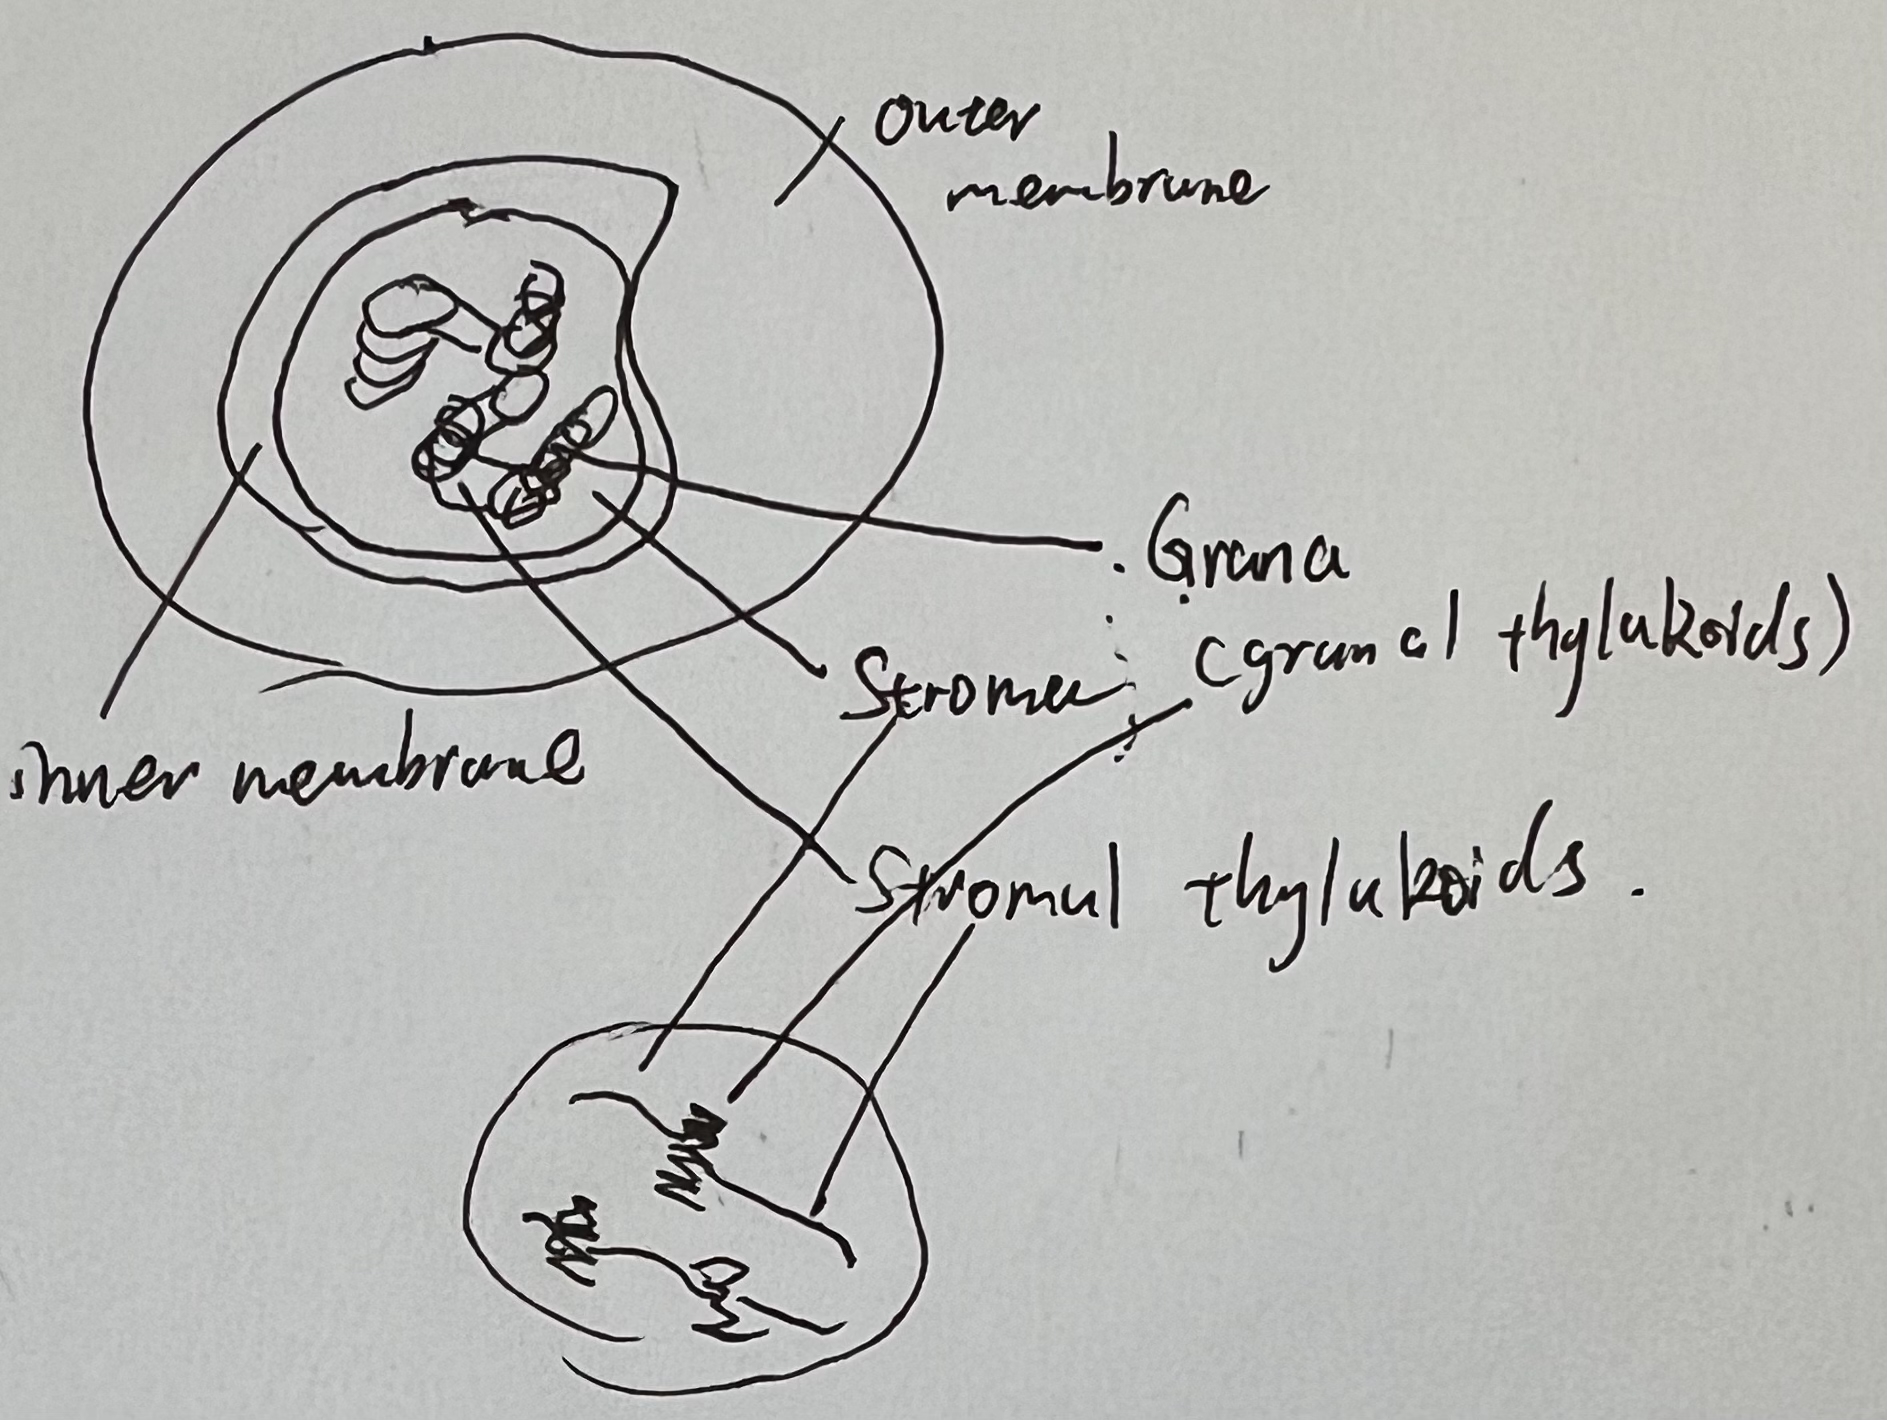 outer
membrane
Grana
(granal thylakoids)
Stroma
inner membrane
Stromal thylakoids.